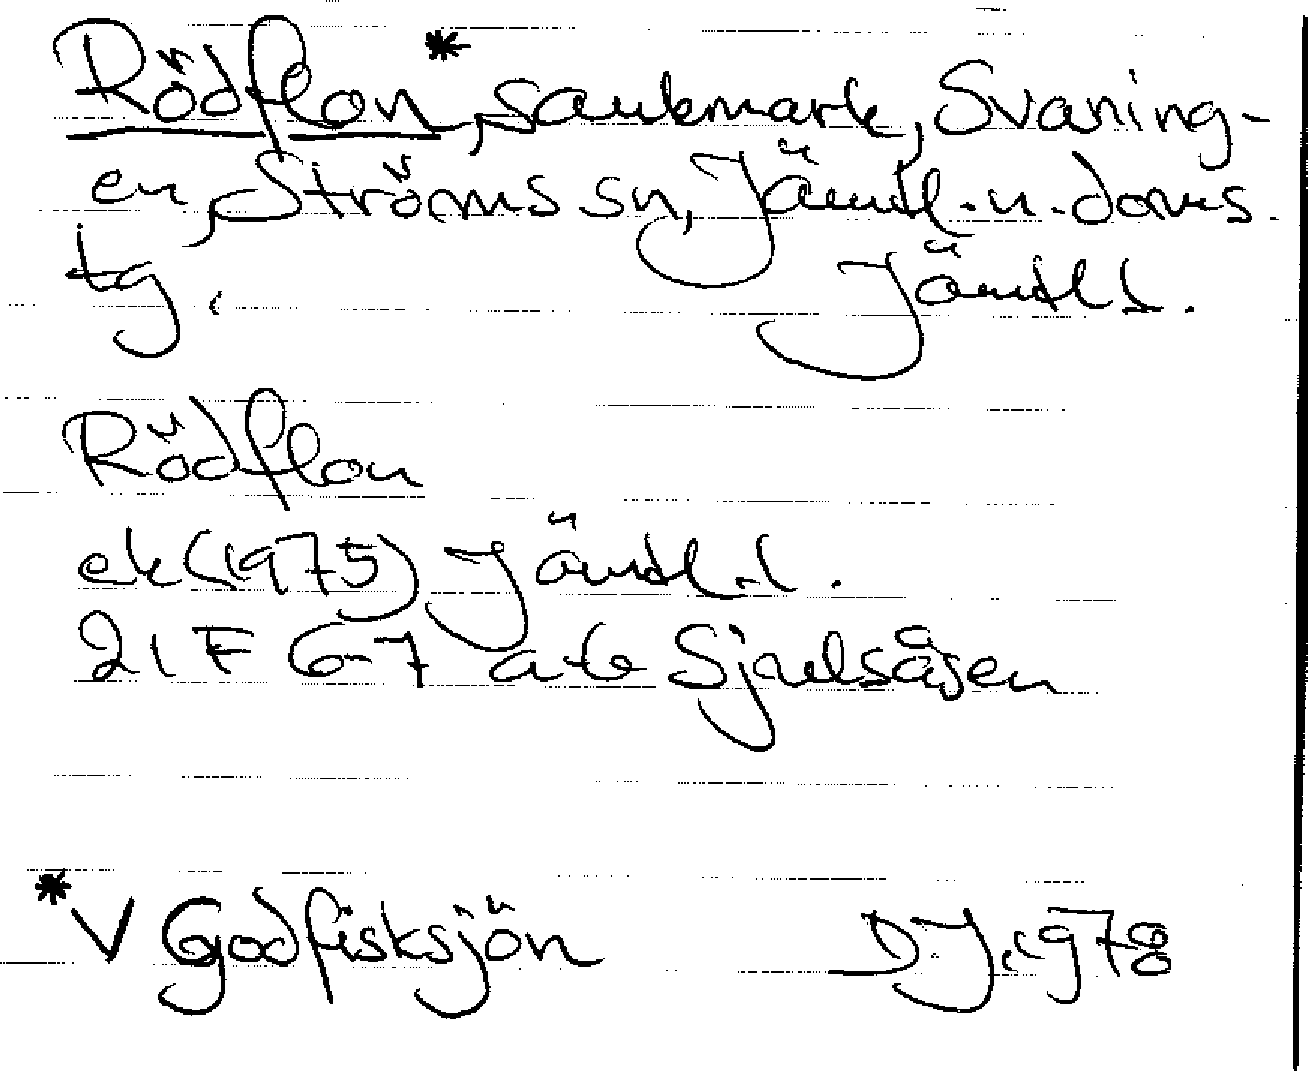 Rödflon*, sankmark, Svaning-
en, Ströms sn, Jämtl. n. doms.
tg. Jämtl l.
Rödflon
ek (1975) Jämtl. l.
21 F 6-7 a-b Sjulsåsen
*V Godfisksjön DJ. 1978